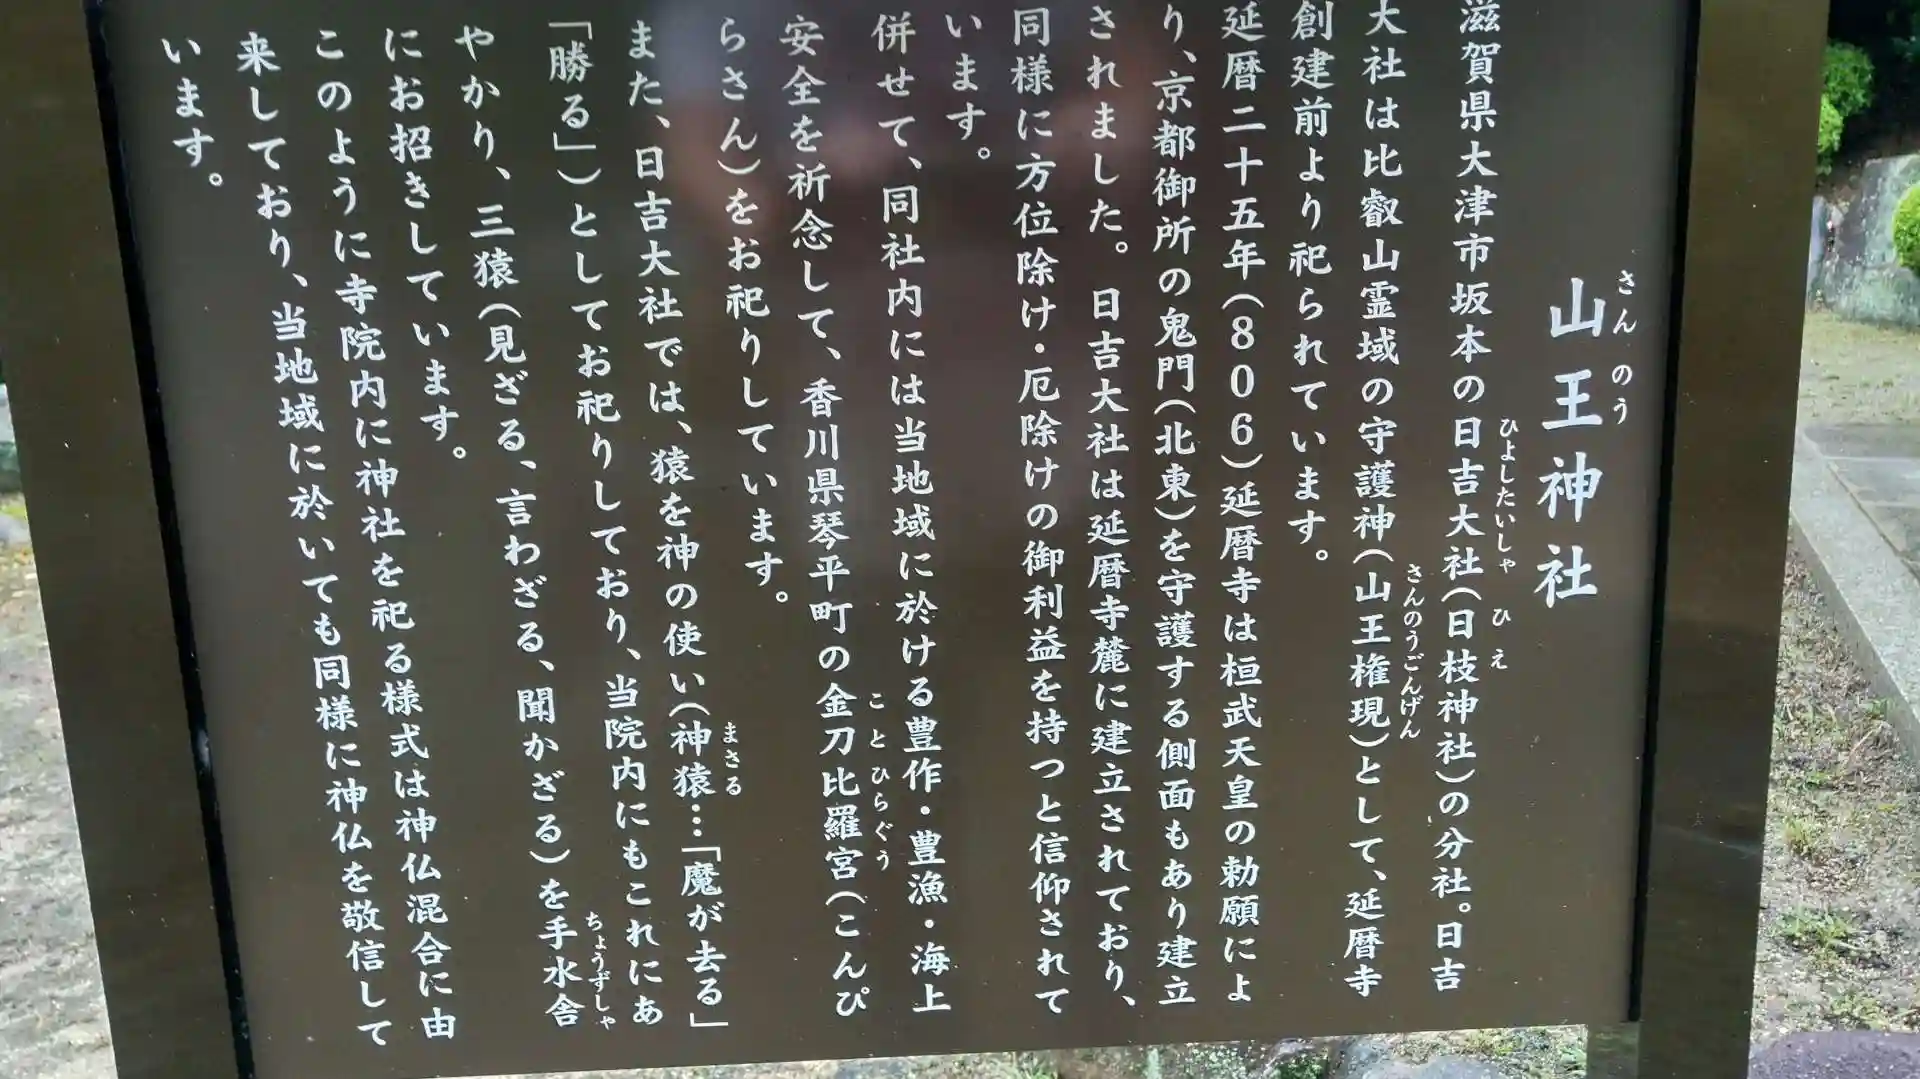 山王神社
さんのう
滋賀県大津市坂本の日吉大社(日枝神社)の分社。日吉
ひよしたいしゃ ひえ
大社は比叡山霊域の守護神(山王権現)として、延暦寺
さんのうごんげん
創建前より祀られています。
延暦二十五年(806)延暦寺は桓武天皇の勅願によ
り、京都御所の鬼門(北東)を守護する側面もあり建立
されました。日吉大社は延暦寺麓に建立されており、
同様に方位除け・厄除けの御利益を持つと信仰されて
います。
併せて、同社内には当地域に於ける豊作・豊漁・海上
安全を祈念して、香川県琴平町の金刀比羅宮(こんぴ
ことひらぐう
らさん)をお祀りしています。
また、日吉大社では、猿を神の使い(神猿…「魔が去る」
まさる
「勝る」)としてお祀りしており、当院内にもこれにあ
やかり、三猿(見ざる、言わざる、聞かざる)を手水舎
ちょうずしゃ
にお招きしています。
このように寺院内に神社を祀る様式は神仏混合に由
来しており、当地域に於いても同様に神仏を敬信して
います。